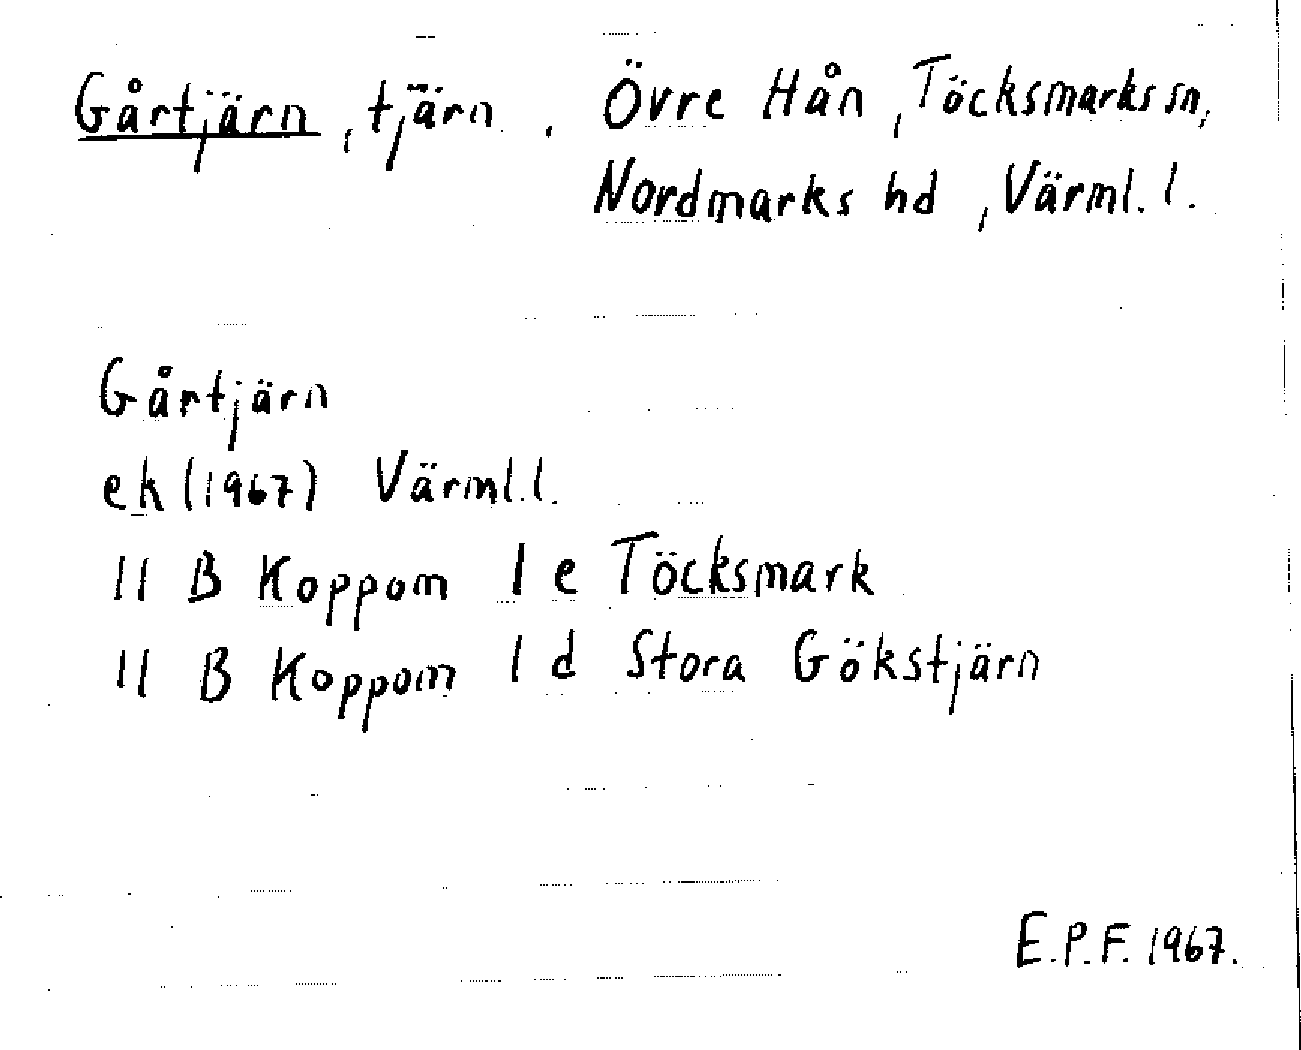 Gårtjärn, tjärn. Övre Hån, Töcksmarks sn,
Nordmarks hd, Värml. l.
Gårtjärn
ek (1967) Värml. l.
11 B Koppom 1 e Töcksmark
11 B Koppom 1 d Stora Gökstjärn
E.P.F. 1967.